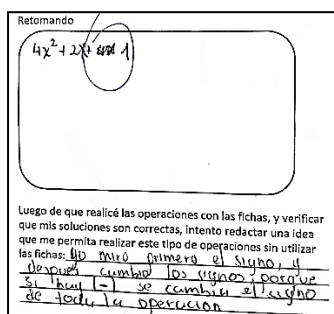 Retomando
4x² + 2x + 1
Luego de que realicé las operaciones con las fichas, y verificar
que mis soluciones son correctas, intento redactar una idea
que me permita realizar este tipo de operaciones sin utilizar
las fichas: Yo miro primero el signo, y
despues cumbio los signos, porque
si hay (-) se cambia el signo
de toda la operacion